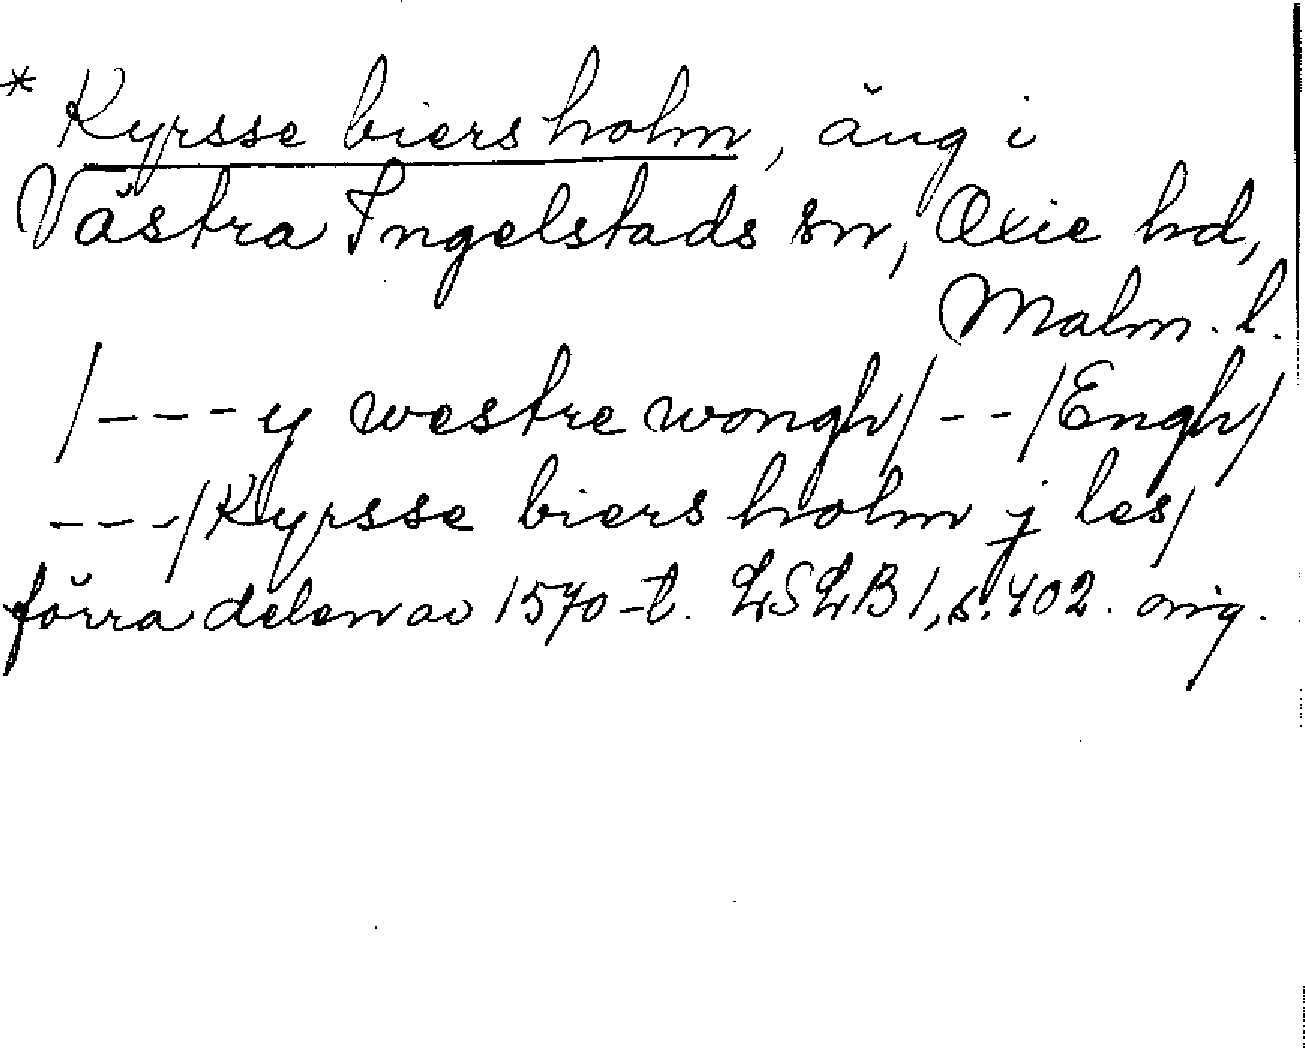 * Kyrsse biers holm, äng i
Västra Ingelstads sn, Oxie hd,
Malm. l.
/---y westre wongh/--/Engh/
---/Kyrsse biers holm j les/
förra delen av 1570-t. LSLB 1, s. 402. orig.